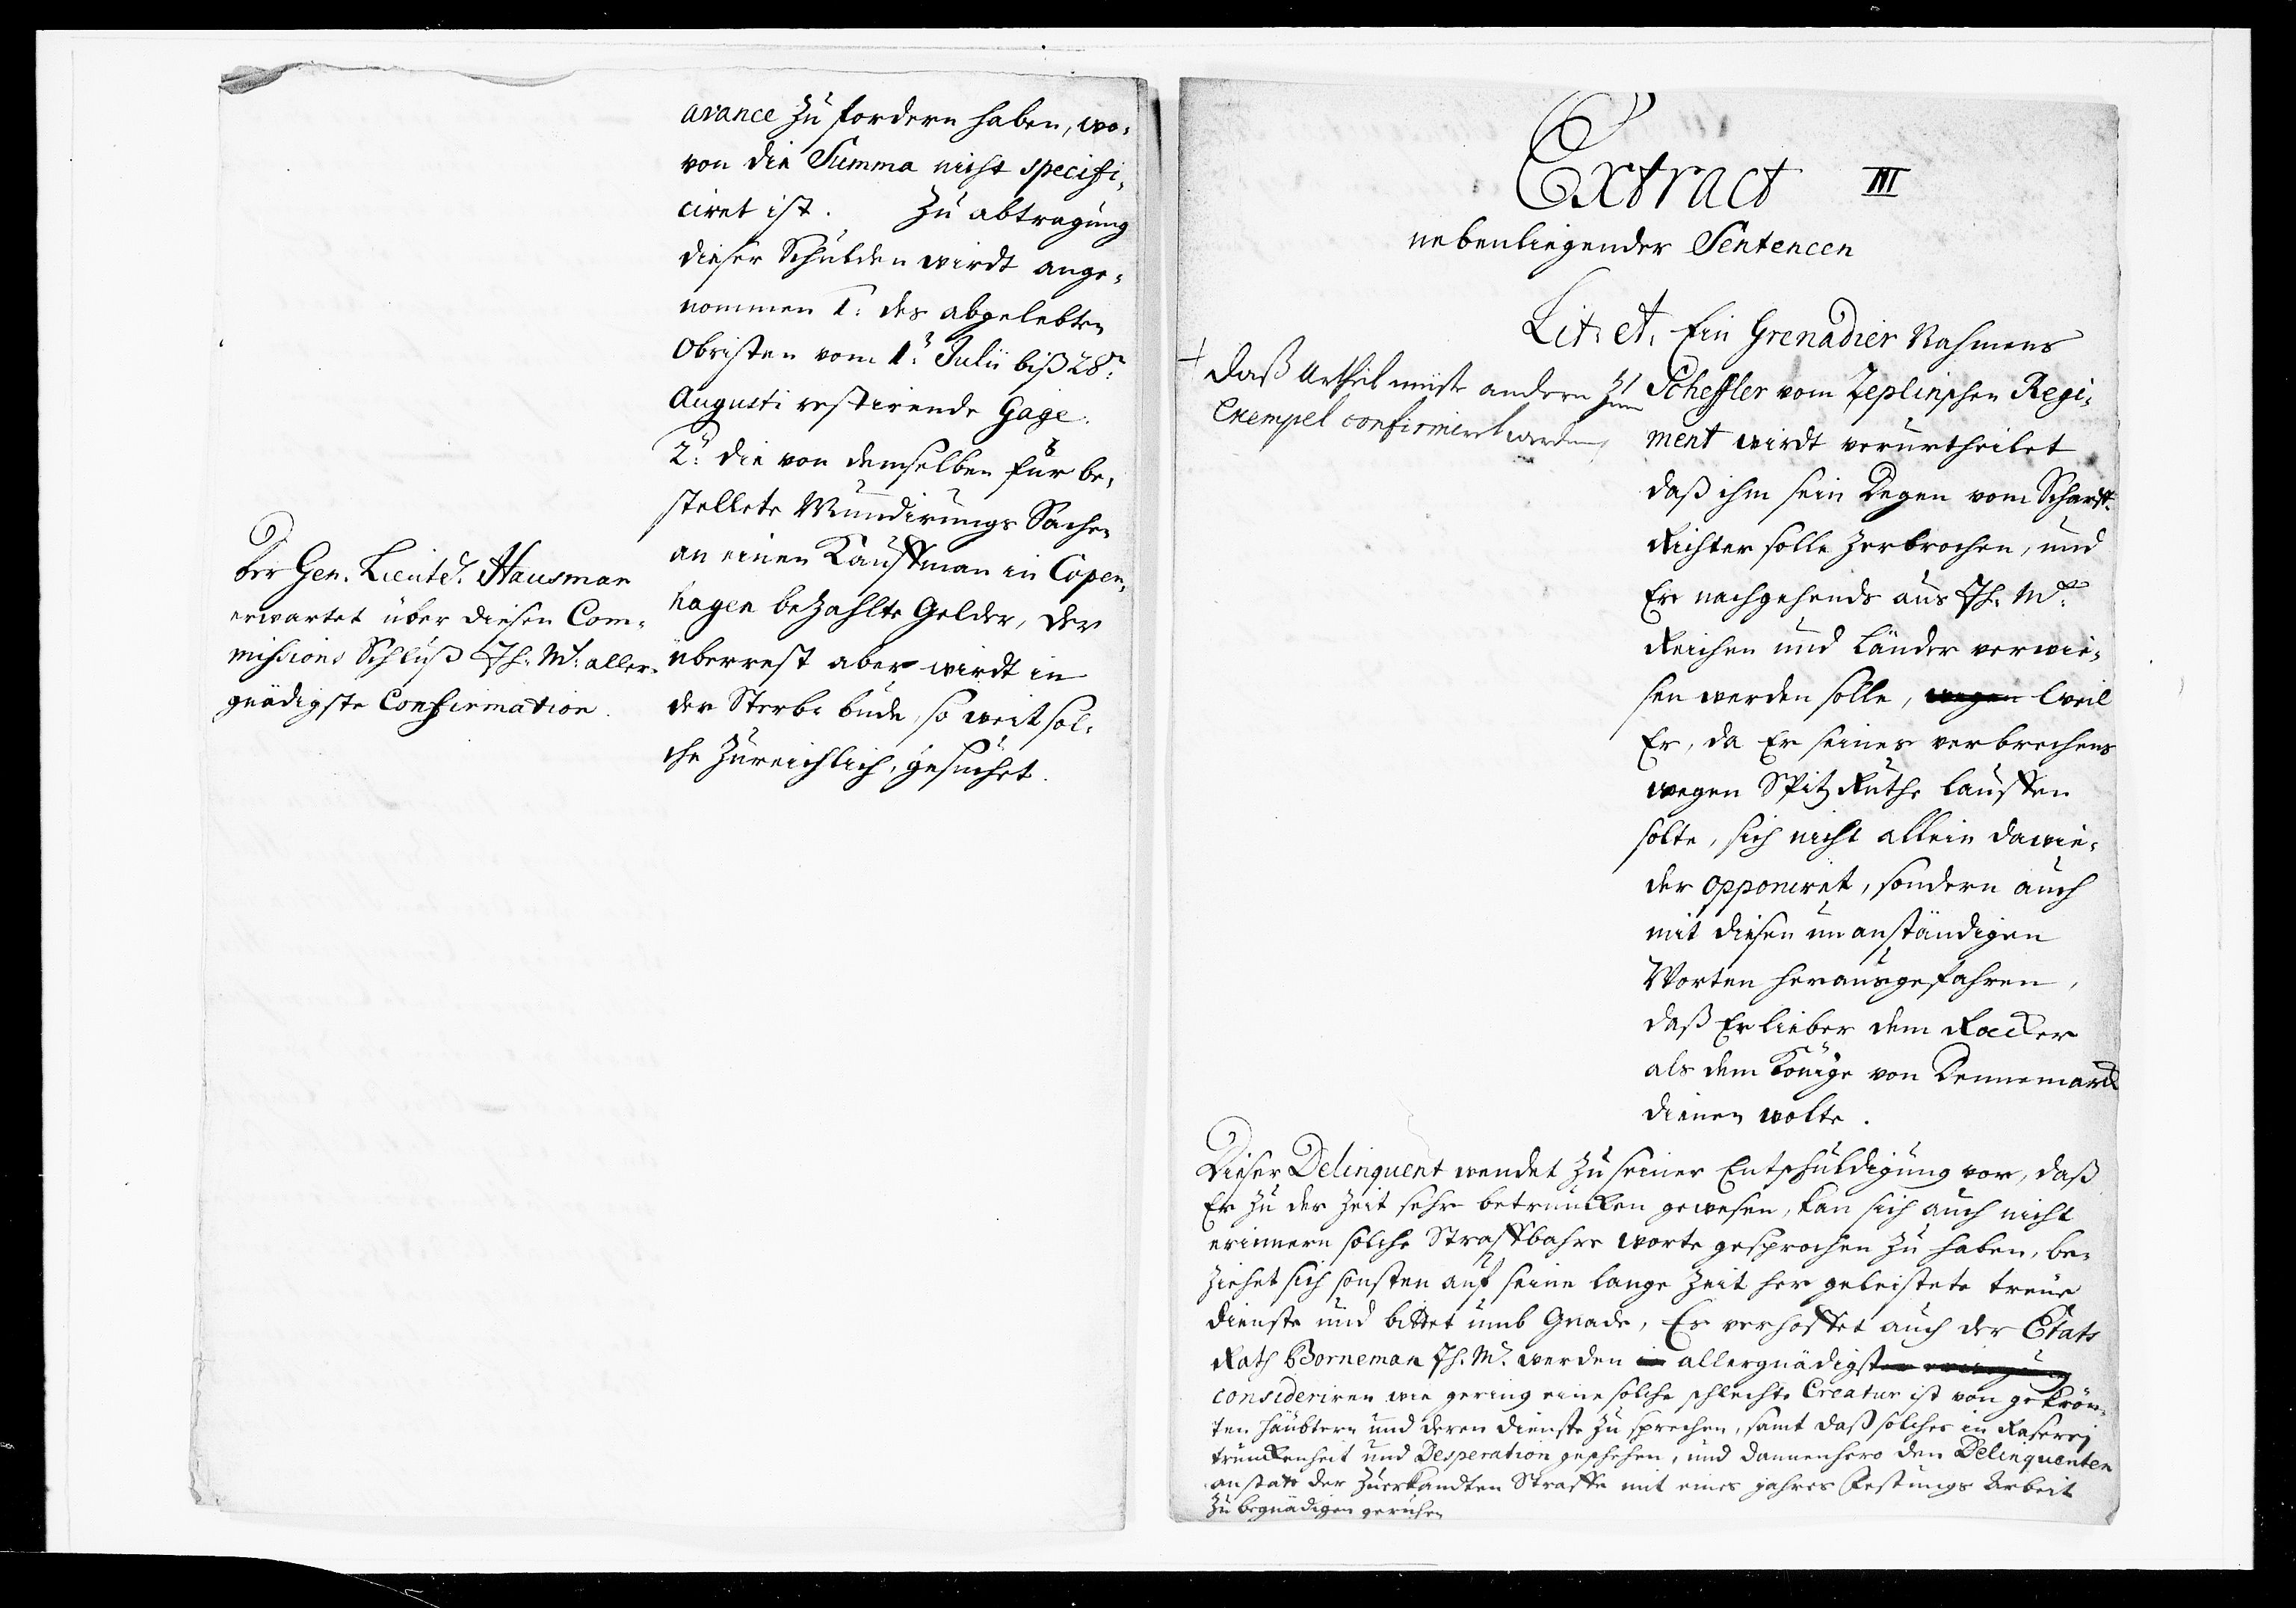 avance zu fordern haben, wo-
von die Summa nicht specifi-
ciret ist. Zu abtragung
dieser Schulden wirdt ange-
nommen 1: des abgelebten
Obristen vom 1: Julii biß 28:
Augusti restirende Gage.
2: die von demselben für be-
stellete Mundirungs Sachen
an einen Kauffman in Copen-
hagen bezahlte Gelder, der
überrest aber wirdt in
der Sterbe bude, so weit sol-
che zureichlich, gesuchet.
Der Gen. Lieut. Hausman
erwartet über diesen Com-
missions Schluß Ih: M: aller-
gnädigste Confirmation.
Extract III
nebenliegender Sentencen
Lit: A. Ein Grenadier Nahmens
Scheffler vom Zeplinschen Regi-
ment wirdt verurtheilet
daß ihm sein Degen vom Scharff-
Richter solle zerbrochen, und
Er nachgehends aus Ih. M:
Reichen und Länder verwie-
sen werden solle, wegen weil
Er, da Er seines verbrechens
wegen Spitz Ruthe lauffen
solte, sich nicht allein dawie-
der opponiret, sondern auch
mit diesen unanständigen
Worten herausgefahren,
daß Er lieber dem Racker
als dem Könige von Dennemarck
dienen wolte.
+ Daß Urtheil müste andern zum
Exempel confirmiert werden
Dieser Delinquent wendet zu seiner Entschuldigung vor, daß
Er zu der Zeit sehr betruncken gewesen, kan sich auch nicht
erinnern solche Straffbahre worte gesprochen zu haben, be-
ziehet sich sonsten auf seine lange Zeit her geleistete treue
dienste und bittet umb Gnade, Es verhoffet auch der Etats
Rath Borneman Ih. M: werden in allergnädigster erwegung
consideriren wie gering eine solche schlechte Creatur ist von gekrön-
ten Häubtern und deren dienste zu sprechen, samt daß solches in Raserej
trunckenheit und Desperation geschehen, und dannenhero den Delinquenten
anstatt der zuerkandten Straffe mit eines jahres Festungs Arbeit
zu begnädigen geruhen